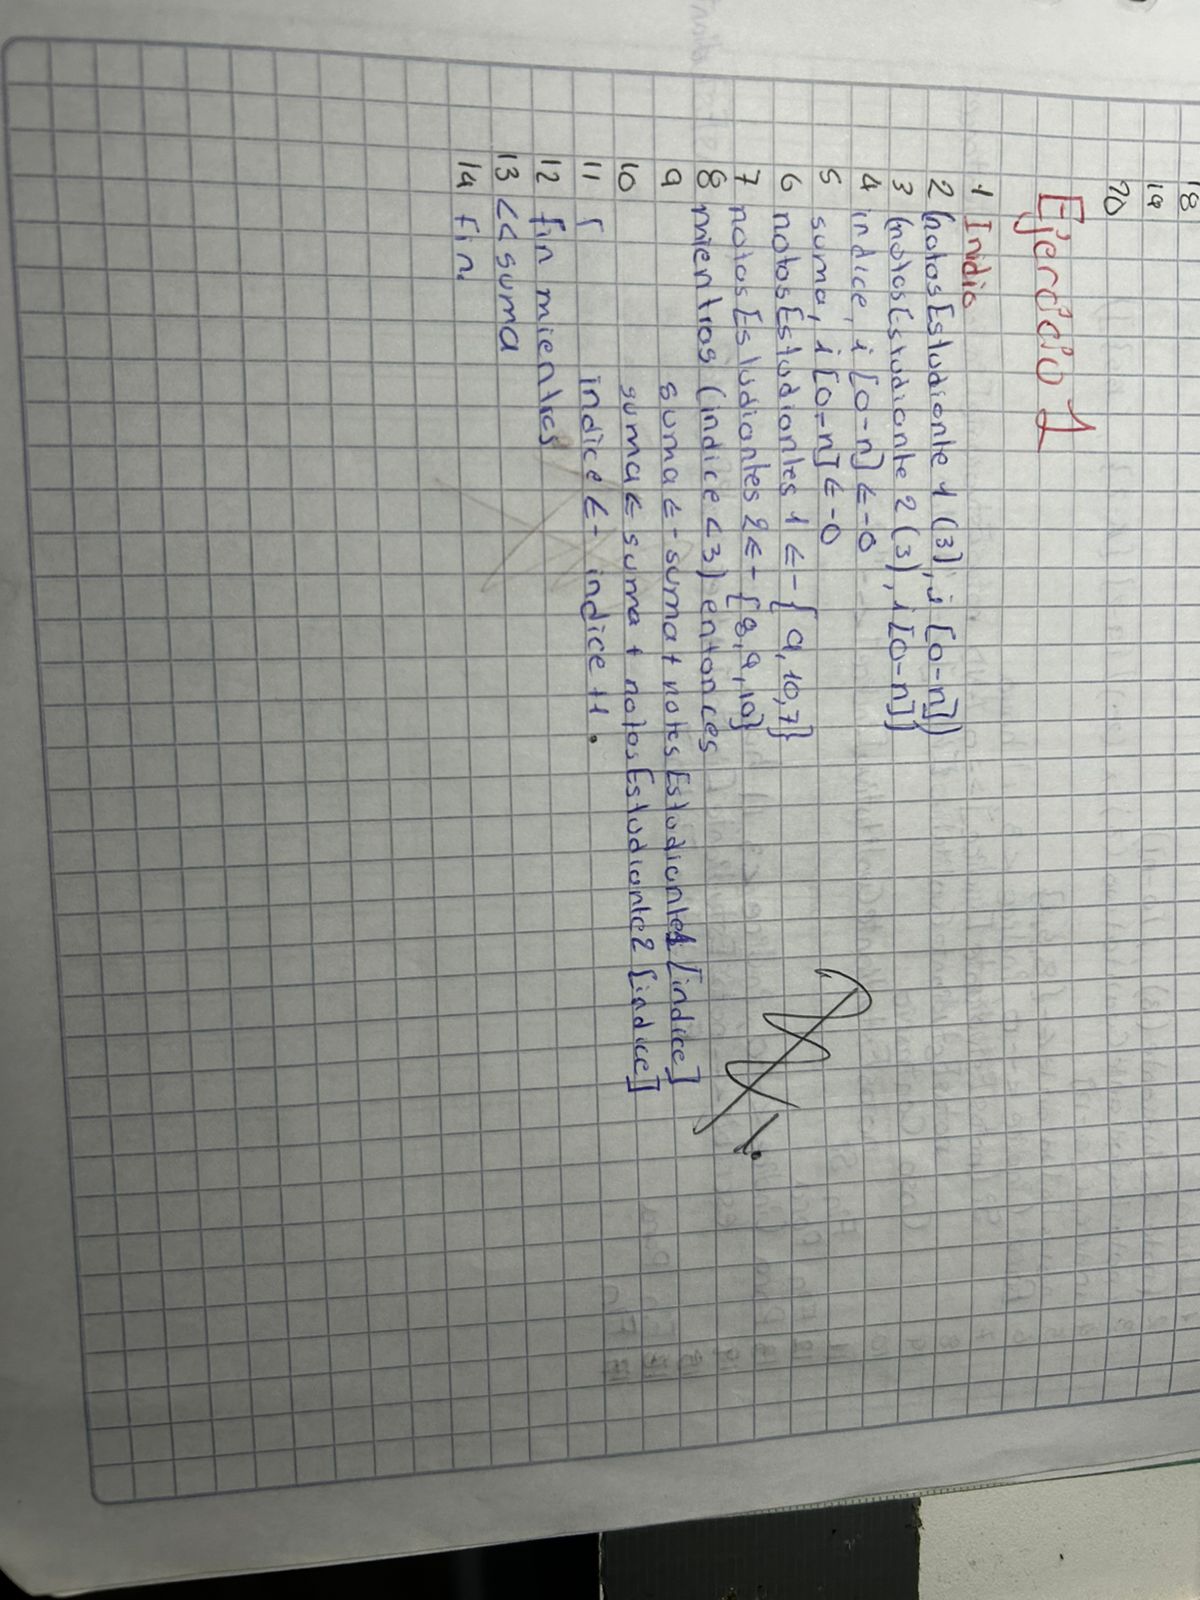 18
19
20
Ejercicio 1
1 Inicio
2 (notasEstudiante 1 (3), i [0-n])
3 (notasEstudiante 2 (3), i [0-n])
4 indice, i [0-n] <-0
5 suma, i [0-n] <-0
6 notasEstudiantes 1 <- { 9, 10, 7}
7 notasEstudiantes 2 <- { 8, 9, 10}
8 mientras (indice <3) entonces
9 suma <- suma + notasEstudiante1 [indice]
10 suma <- suma + notasEstudiante2 [indice]
11 { indice <- indice +1.
12 fin mientras
13 << suma
14 fin.